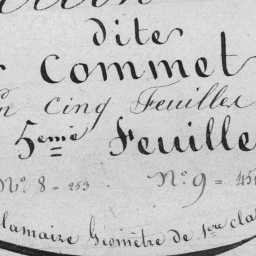 dite
Commet
en cinq Feuilles
5eme Feuille
N.º 8 = 253 N.º 9 = 451
lamaire Géomètre de 1re clas